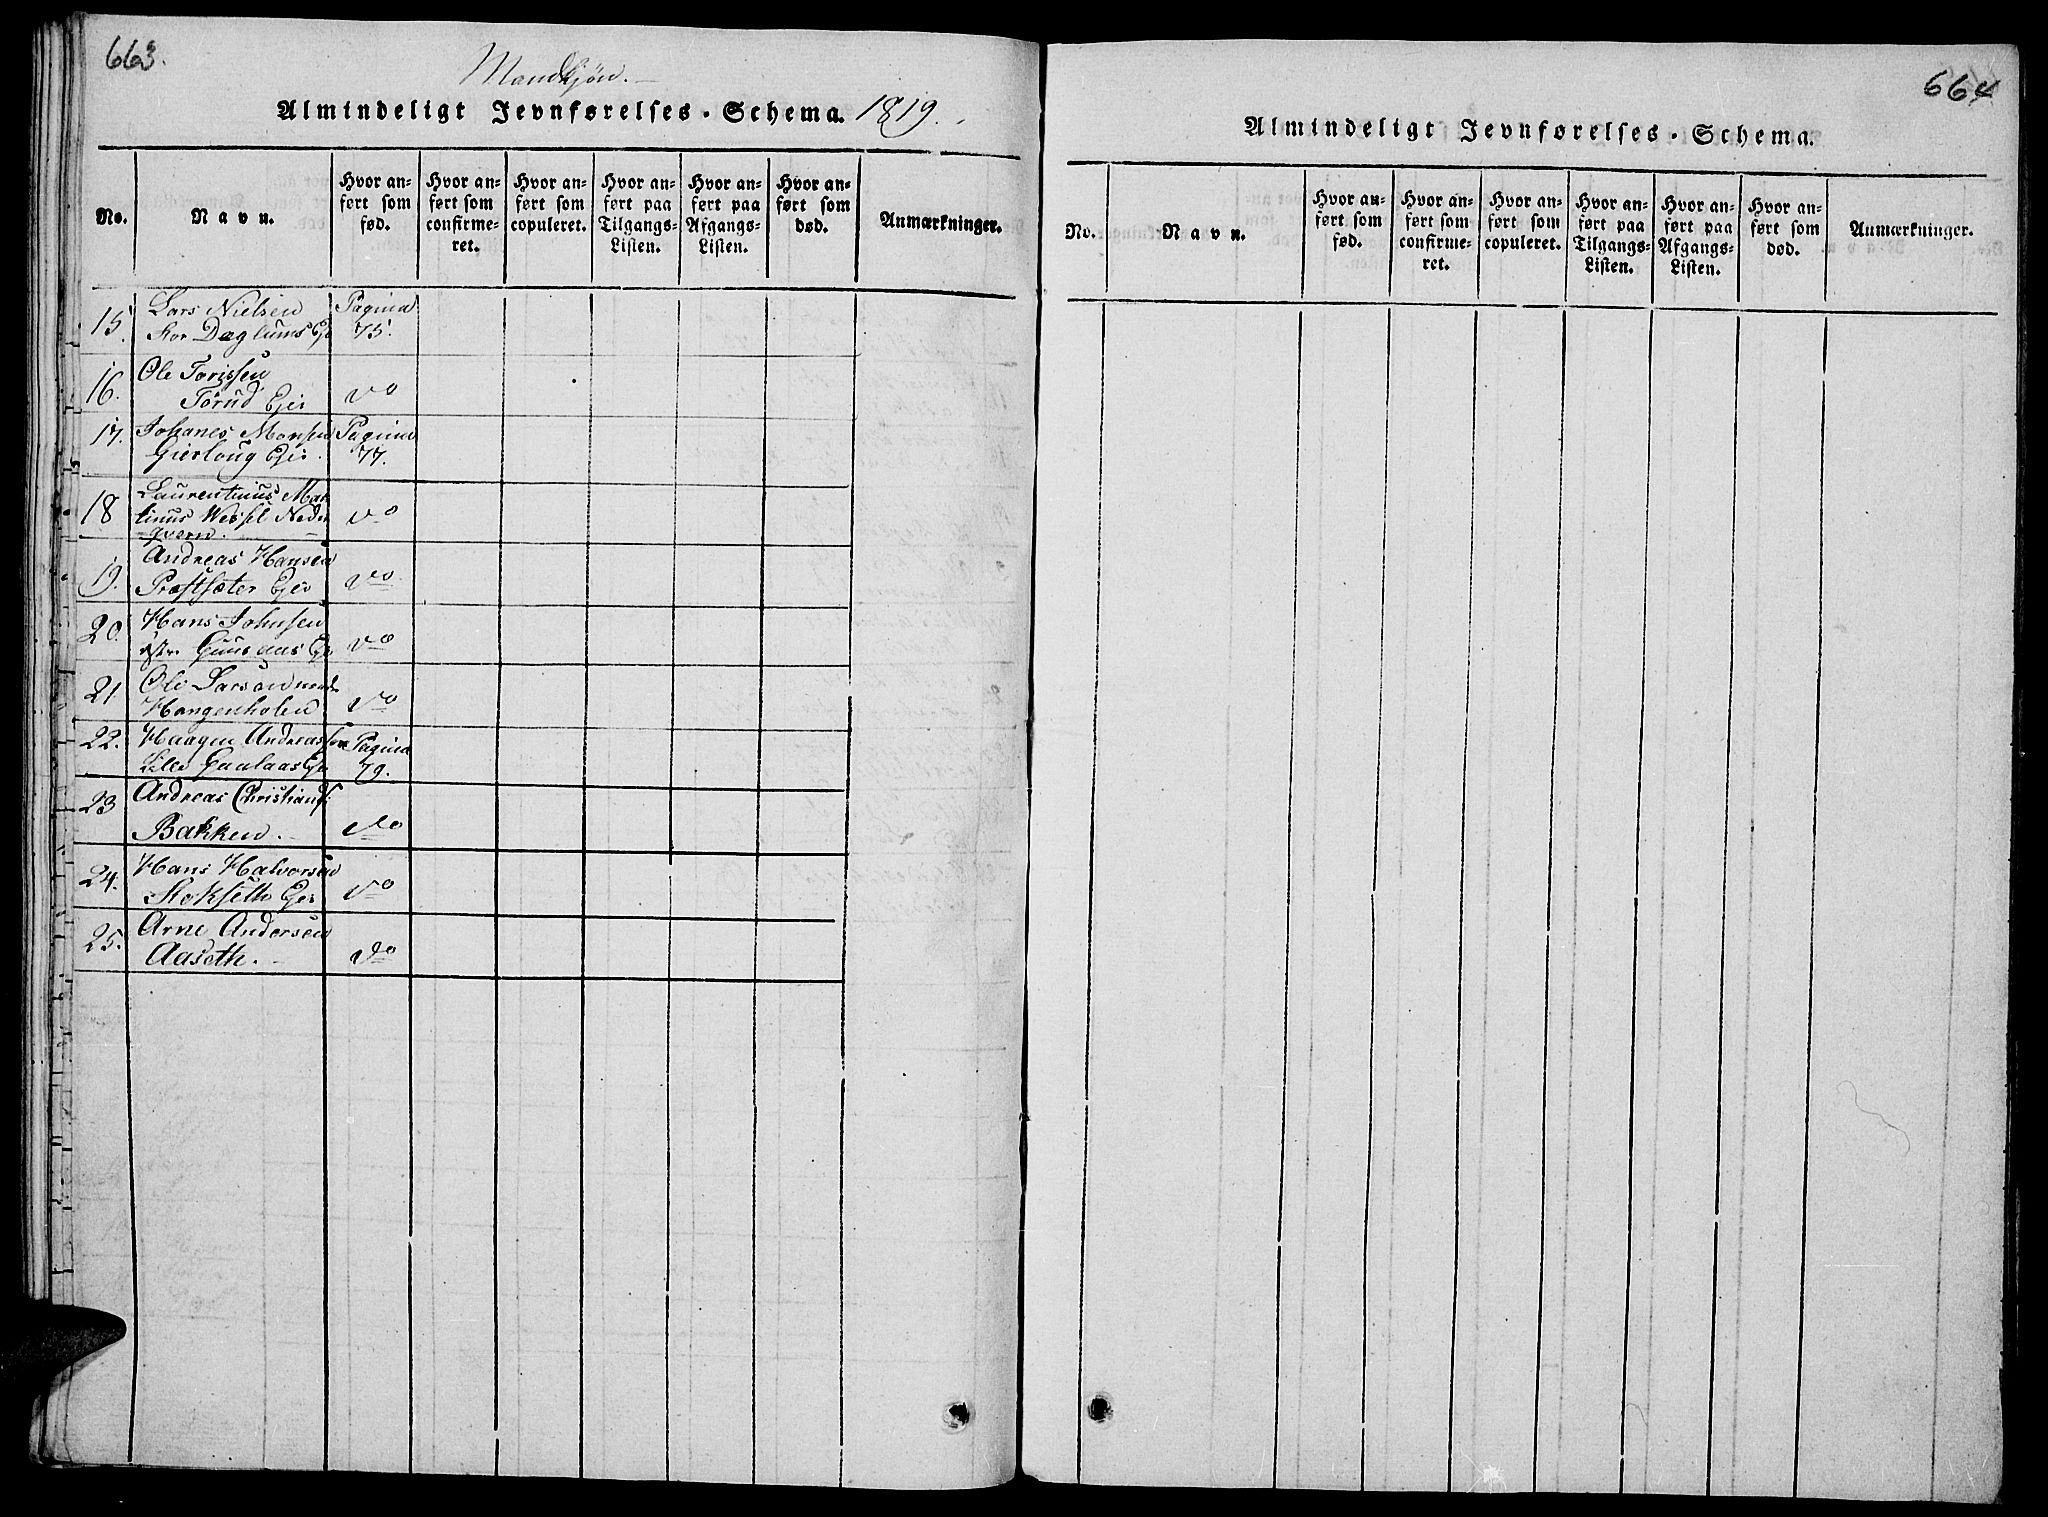 663.
Mandkjøn.
Almindeligt Jevnførelses-Schema. 1819.
No.
Navn.
Hvor an-
ført som
fød.
Hvor an-
ført som
confirme-
ret.
Hvor an-
ført som
copuleret.
Hvor an-
ført paa
Tilgangs-
Listen.
Hvor an-
ført paa
Afgangs-
Listen.
Hvor an-
ført som
død.
Anmærkninger.
15. Lars Nielsen Pagina
Stor Daglums Eje 75.
16. Ole Torissen
Törud Ejer do
17. Johanes Monsen Pagina
Gierloug Ejer. 77.
18 Laurentinus Mar
tinus Wessel Neder do
qvern.
19. Andreas Hansen
Præstsæter Ejer do
20. Hans Johnsen
østr. Guulaas Ej do
21. Ole Larsen
Hangenholen do
22. Haagen Andreassen Pagina
Lille Guulaas Eje 79.
23 Andreas Christians:
Bakken. do
24. Hans Halvorsen
Stokseth Ejer do
25. Arne Andersen
Aaseth. do
664
Almindeligt Jevnførelses-Schema.
No.
Navn.
Hvor an-
ført som
fød.
Hvor an-
ført som
confirme-
ret.
Hvor an-
ført som
copuleret.
Hvor an-
ført paa
Tilgangs-
Listen.
Hvor an-
ført paa
Afgangs-
Listen.
Hvor an-
ført som
død.
Anmærkninger.